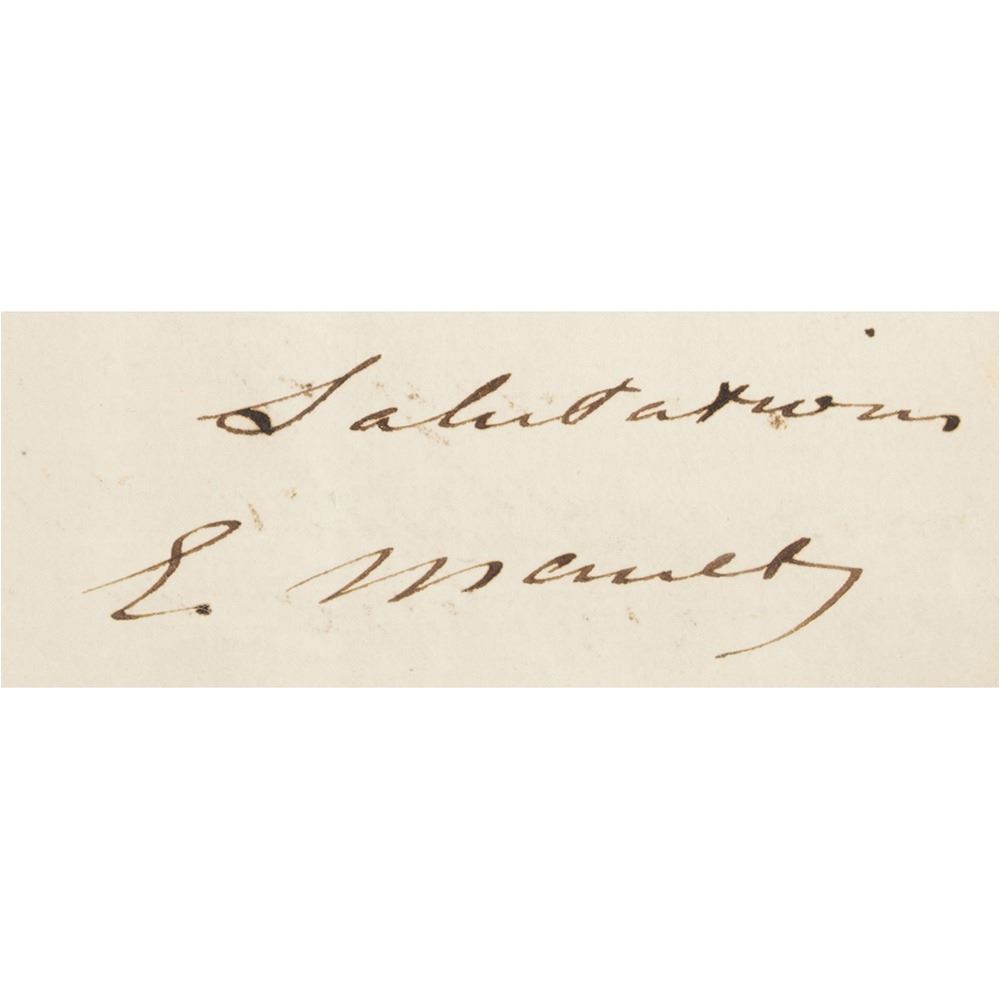 Salutations
E. Manet